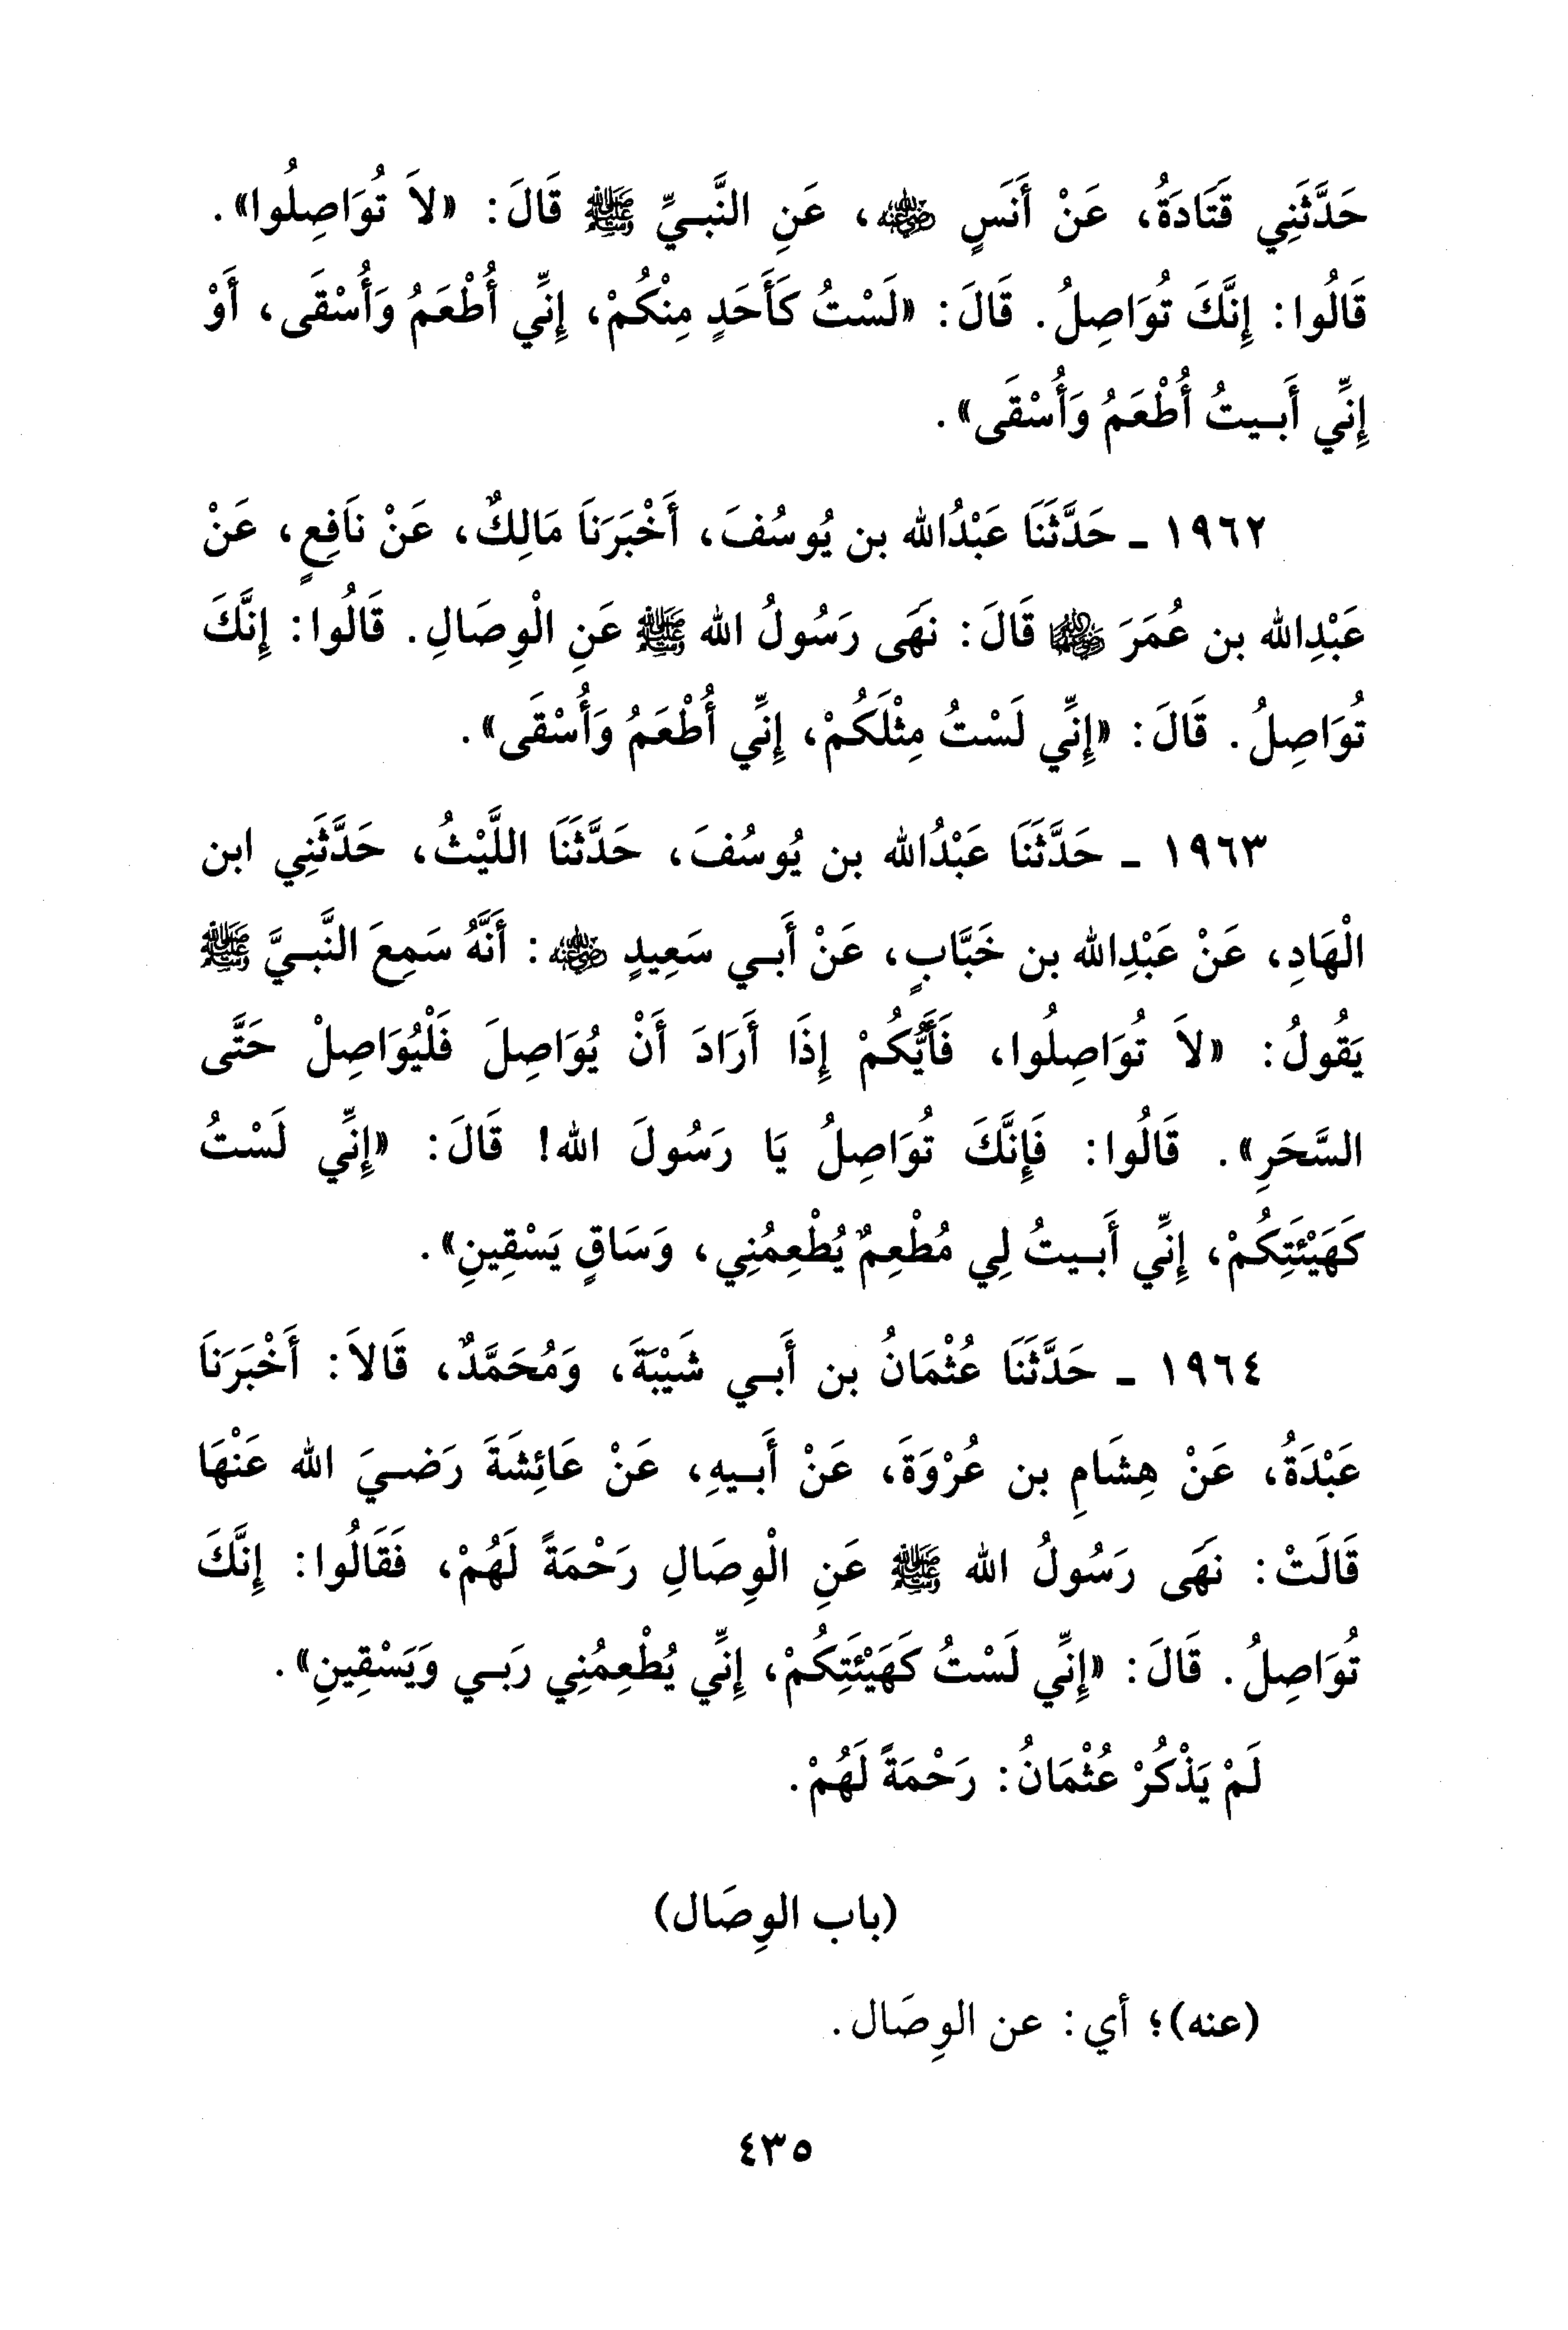 حَدَّثَنِي قَتَادَةُ، عَنْ أَنَسٍ رضي الله عنه، عَنِ النَّبِيِّ ﷺ قَالَ: «لاَ تُوَاصِلُوا».
قَالُوا: إِنَّكَ تُوَاصِلُ. قَالَ: «لَسْتُ كَأَحَدٍ مِنْكُمْ، إِنِّي أُطْعَمُ وَأُسْقَى، أَوْ
إِنِّي أَبِيتُ أُطْعَمُ وَأُسْقَى».
١٩٦٢ - حَدَّثَنَا عَبْدُالله بن يُوسُفَ، أَخْبَرَنَا مَالِكٌ، عَنْ نَافِعٍ، عَنْ
عَبْدِالله بن عُمَرَ رضي الله عنهما قَالَ: نَهَى رَسُولُ الله ﷺ عَنِ الْوِصَالِ. قَالُوا: إِنَّكَ
تُوَاصِلُ. قَالَ: «إِنِّي لَسْتُ مِثْلَكُمْ، إِنِّي أُطْعَمُ وَأُسْقَى».
١٩٦٣ - حَدَّثَنَا عَبْدُالله بن يُوسُفَ، حَدَّثَنَا اللَّيْثُ، حَدَّثَنِي ابن
الْهَادِ، عَنْ عَبْدِالله بن خَبَّابٍ، عَنْ أَبِي سَعِيدٍ رضي الله عنه: أَنَّهُ سَمِعَ النَّبِيَّ ﷺ
يَقُولُ: «لاَ تُوَاصِلُوا، فَأَيُّكُمْ إِذَا أَرَادَ أَنْ يُوَاصِلَ فَلْيُوَاصِلْ حَتَّى
السَّحَرِ». قَالُوا: فَإِنَّكَ تُوَاصِلُ يَا رَسُولَ الله! قَالَ: «إِنِّي لَسْتُ
كَهَيْئَتِكُمْ، إِنِّي أَبِيتُ لِي مُطْعِمٌ يُطْعِمُنِي، وَسَاقٍ يَسْقِينِ».
١٩٦٤ - حَدَّثَنَا عُثْمَانُ بن أَبِي شَيْبَةَ، وَمُحَمَّدٌ، قَالاَ: أَخْبَرَنَا
عَبْدَةُ، عَنْ هِشَامِ بن عُرْوَةَ، عَنْ أَبِيهِ، عَنْ عَائِشَةَ رَضِيَ الله عَنْهَا
قَالَتْ: نَهَى رَسُولُ الله ﷺ عَنِ الْوِصَالِ رَحْمَةً لَهُمْ، فَقَالُوا: إِنَّكَ
تُوَاصِلُ. قَالَ: «إِنِّي لَسْتُ كَهَيْئَتِكُمْ، إِنِّي يُطْعِمُنِي رَبِي وَيَسْقِينِ».
لَمْ يَذْكُرْ عُثْمَانُ: رَحْمَةً لَهُمْ.
(باب الوِصَال)
(عنه)؛ أي: عن الوِصَال.
٤٣٥